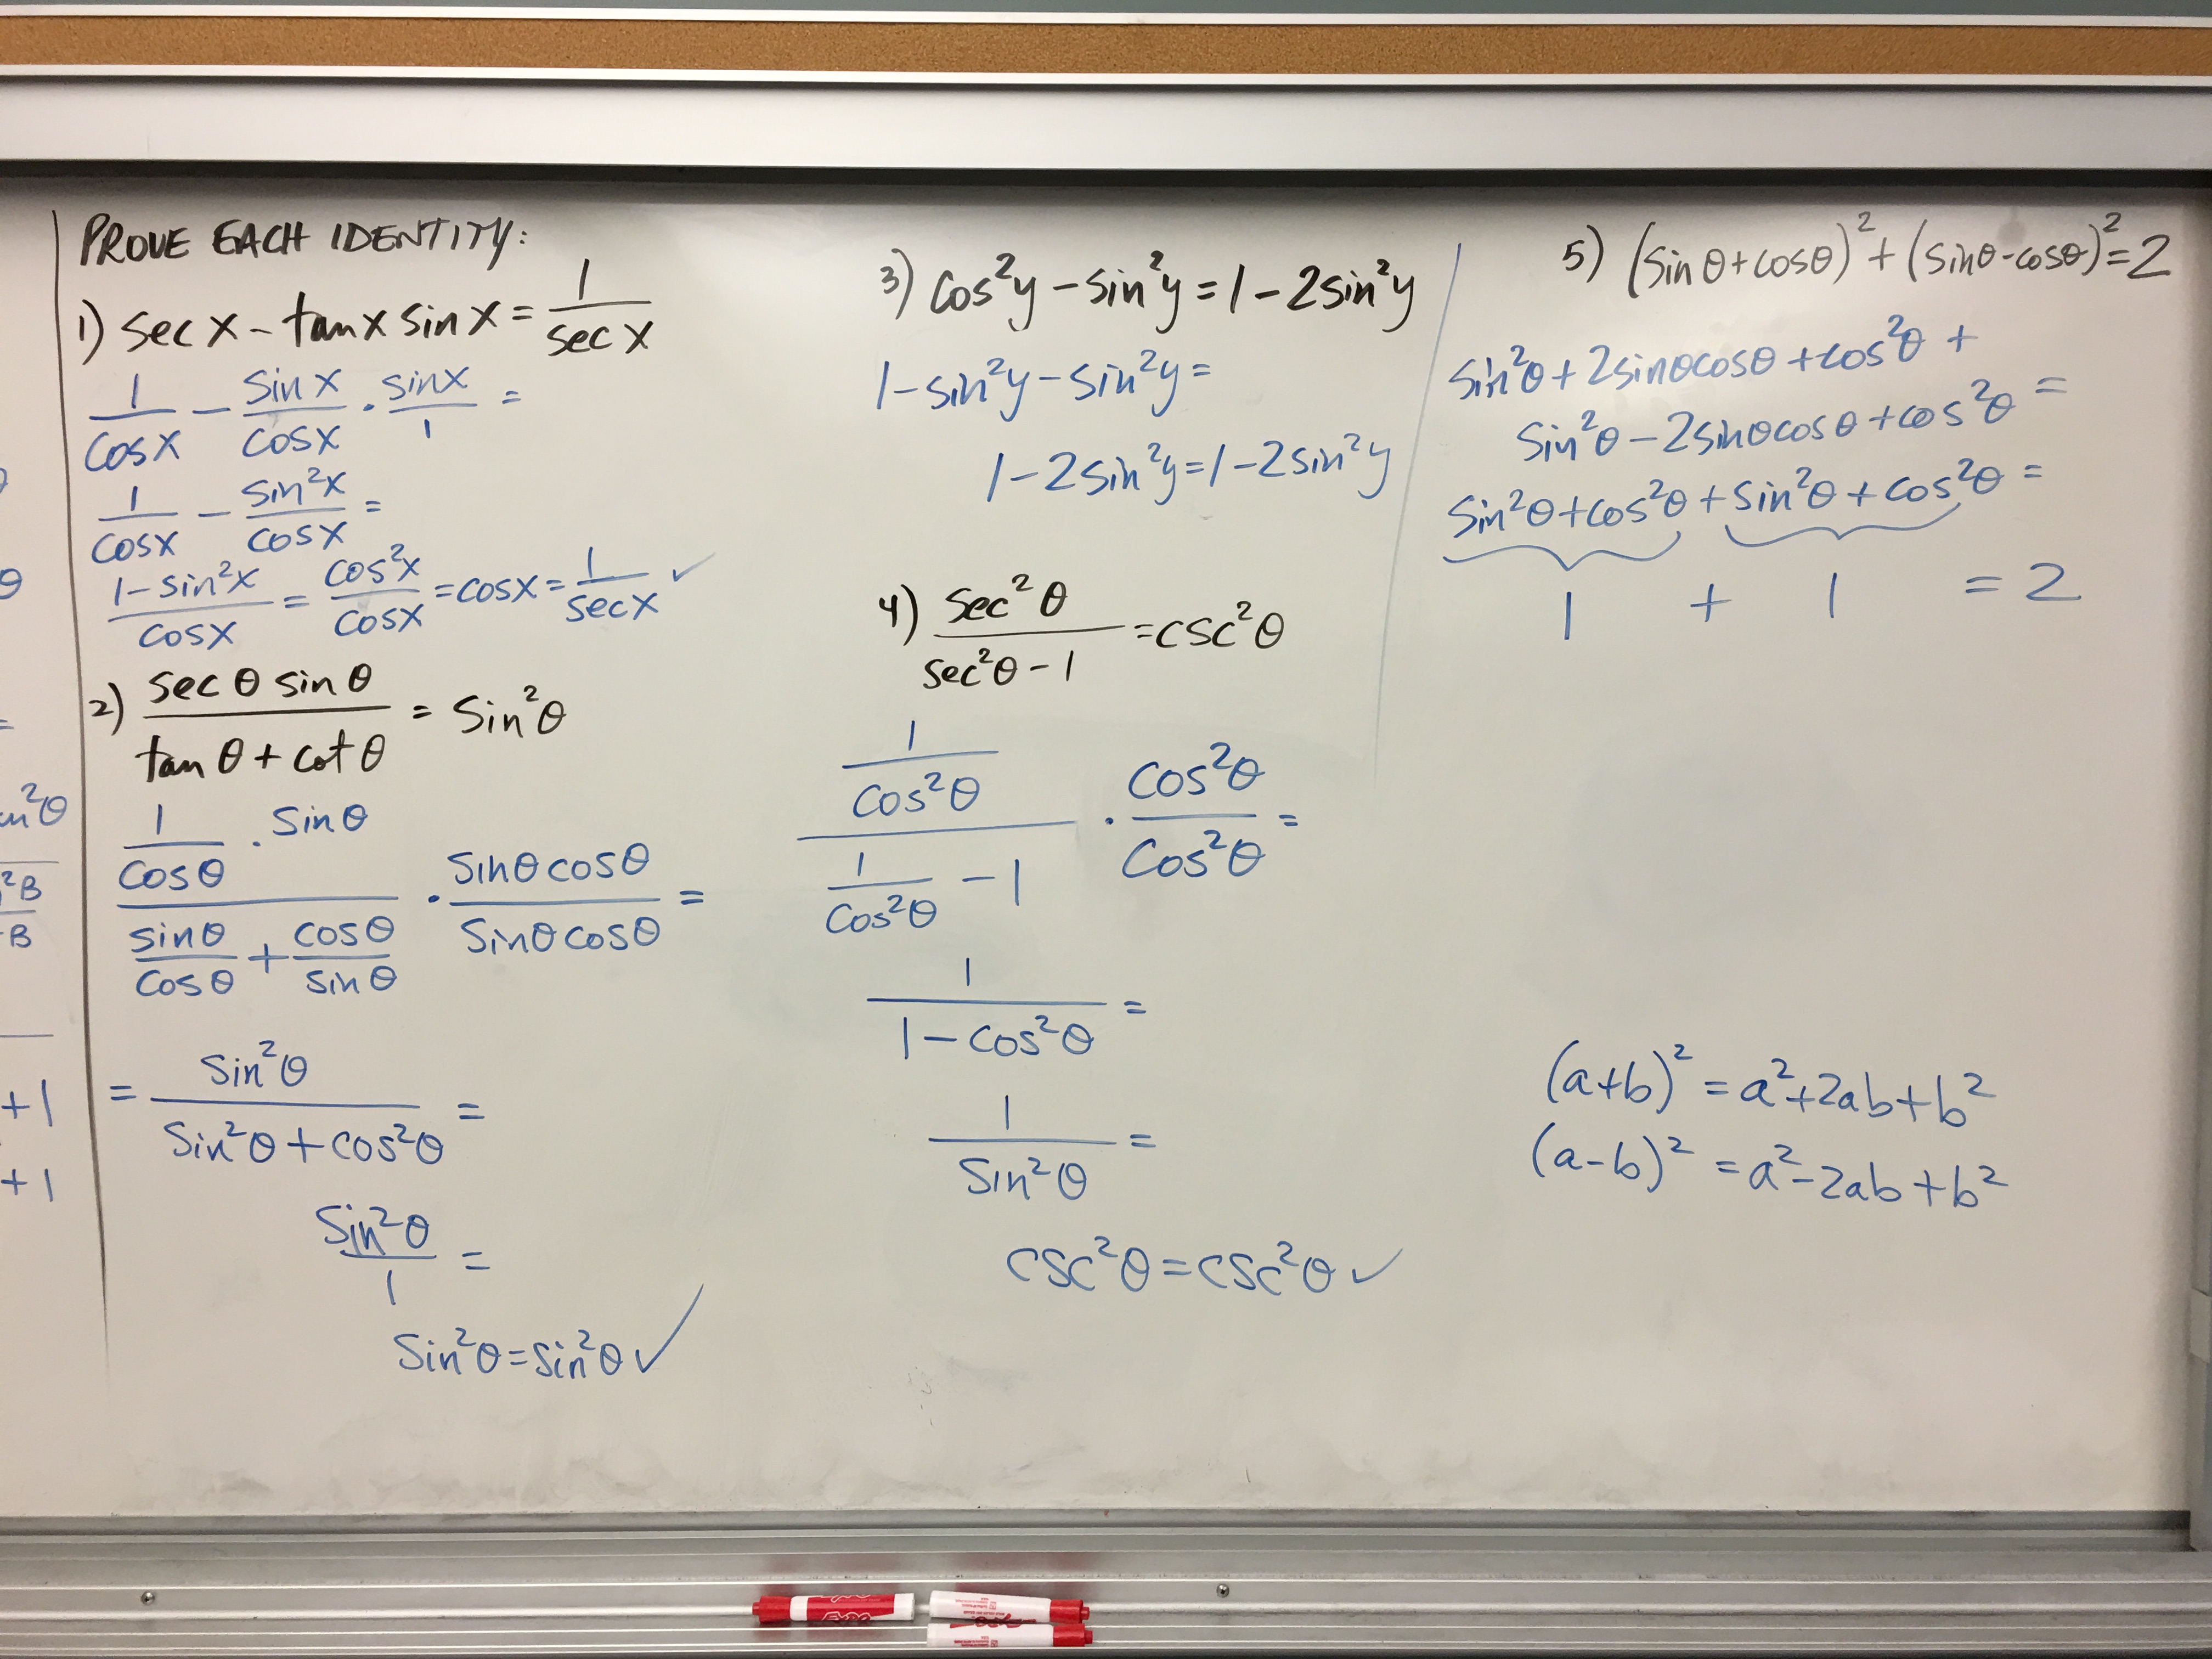 PROVE EACH IDENTITY:
1) sec x - tan x sin x = 1/sec x
1/cos x - sin x/cos x · sin x/1 =
1/cos x - sin²x/cos x =
1 - sin²x/cos x = cos²x/cos x = cos x = 1/sec x ✓
2) sec θ sin θ/tan θ + cot θ = sin²θ
1/cos θ · sin θ
sin θ/cos θ + cos θ/sin θ · sin θ cos θ/sin θ cos θ =
= sin²θ/sin²θ + cos²θ =
sin²θ/1 =
sin²θ = sin²θ ✓
3) cos²y - sin²y = 1 - 2sin²y
1 - sin²y - sin²y =
1 - 2sin²y = 1 - 2sin²y
4) sec²θ/sec²θ - 1 = csc²θ
1/cos²θ
1/cos²θ - 1 · cos²θ/cos²θ =
1/1 - cos²θ =
1/sin²θ =
csc²θ = csc²θ ✓
5) (sin θ + cos θ)² + (sin θ - cos θ)² = 2
sin²θ + 2sin θ cos θ + cos²θ +
sin²θ - 2sin θ cos θ + cos²θ =
sin²θ + cos²θ + sin²θ + cos²θ =
1 + 1 = 2
(a+b)² = a² + 2ab + b²
(a-b)² = a² - 2ab + b²
²B
B
+1
+1
Expo